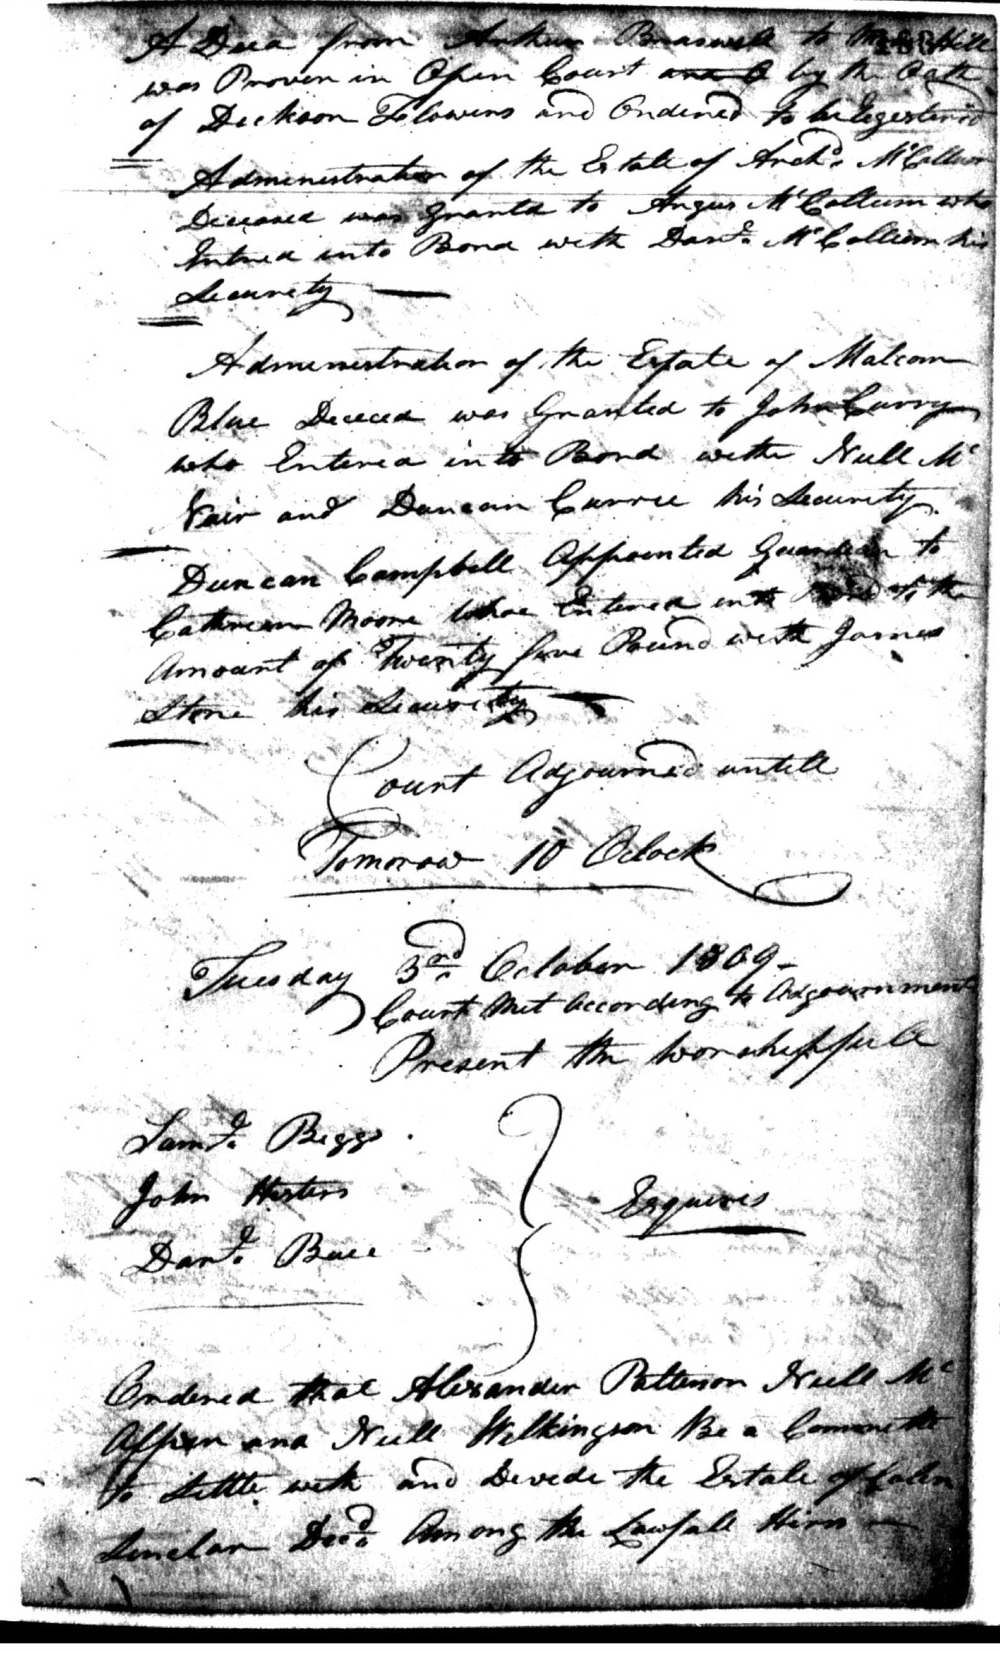 A Deed from Arthur Braswell to Hill
was Proven in Open Court and O by the Oath
of Dickson Flowers and Ordered to be Registered
Administration of the Estate of Archd. McCollum
Deceased was Granted to Angus McCollum who
Entred into Bond with Danl. McCollum his
Security
Administration of the Estate of Malcom
Blue Dececed was Granted to John Curry
who Entered into Bond with Neill Mc
Nair and Duncan Currie his Security
Duncan Campbell Appointed Guardian to
Cathrean Moore Whoe Entered into Bond to the
Amount of Twenty five Pound with James
Stone his Security
Court Adjourned untill
Tomorow 10 Oclock
Tuesday 3rd October 1809
Court Met According to Adjournment
Present the Worshipfull
Saml. Biggs
John
Danl. Buie
Esquires
Ordered that Alexander Patterson Neill Mc
and Neill Wilkingson Be a Committe
to Settle with and Devide the Estate of Colin
Sinclar Decd. Among the Lawfull Hirs